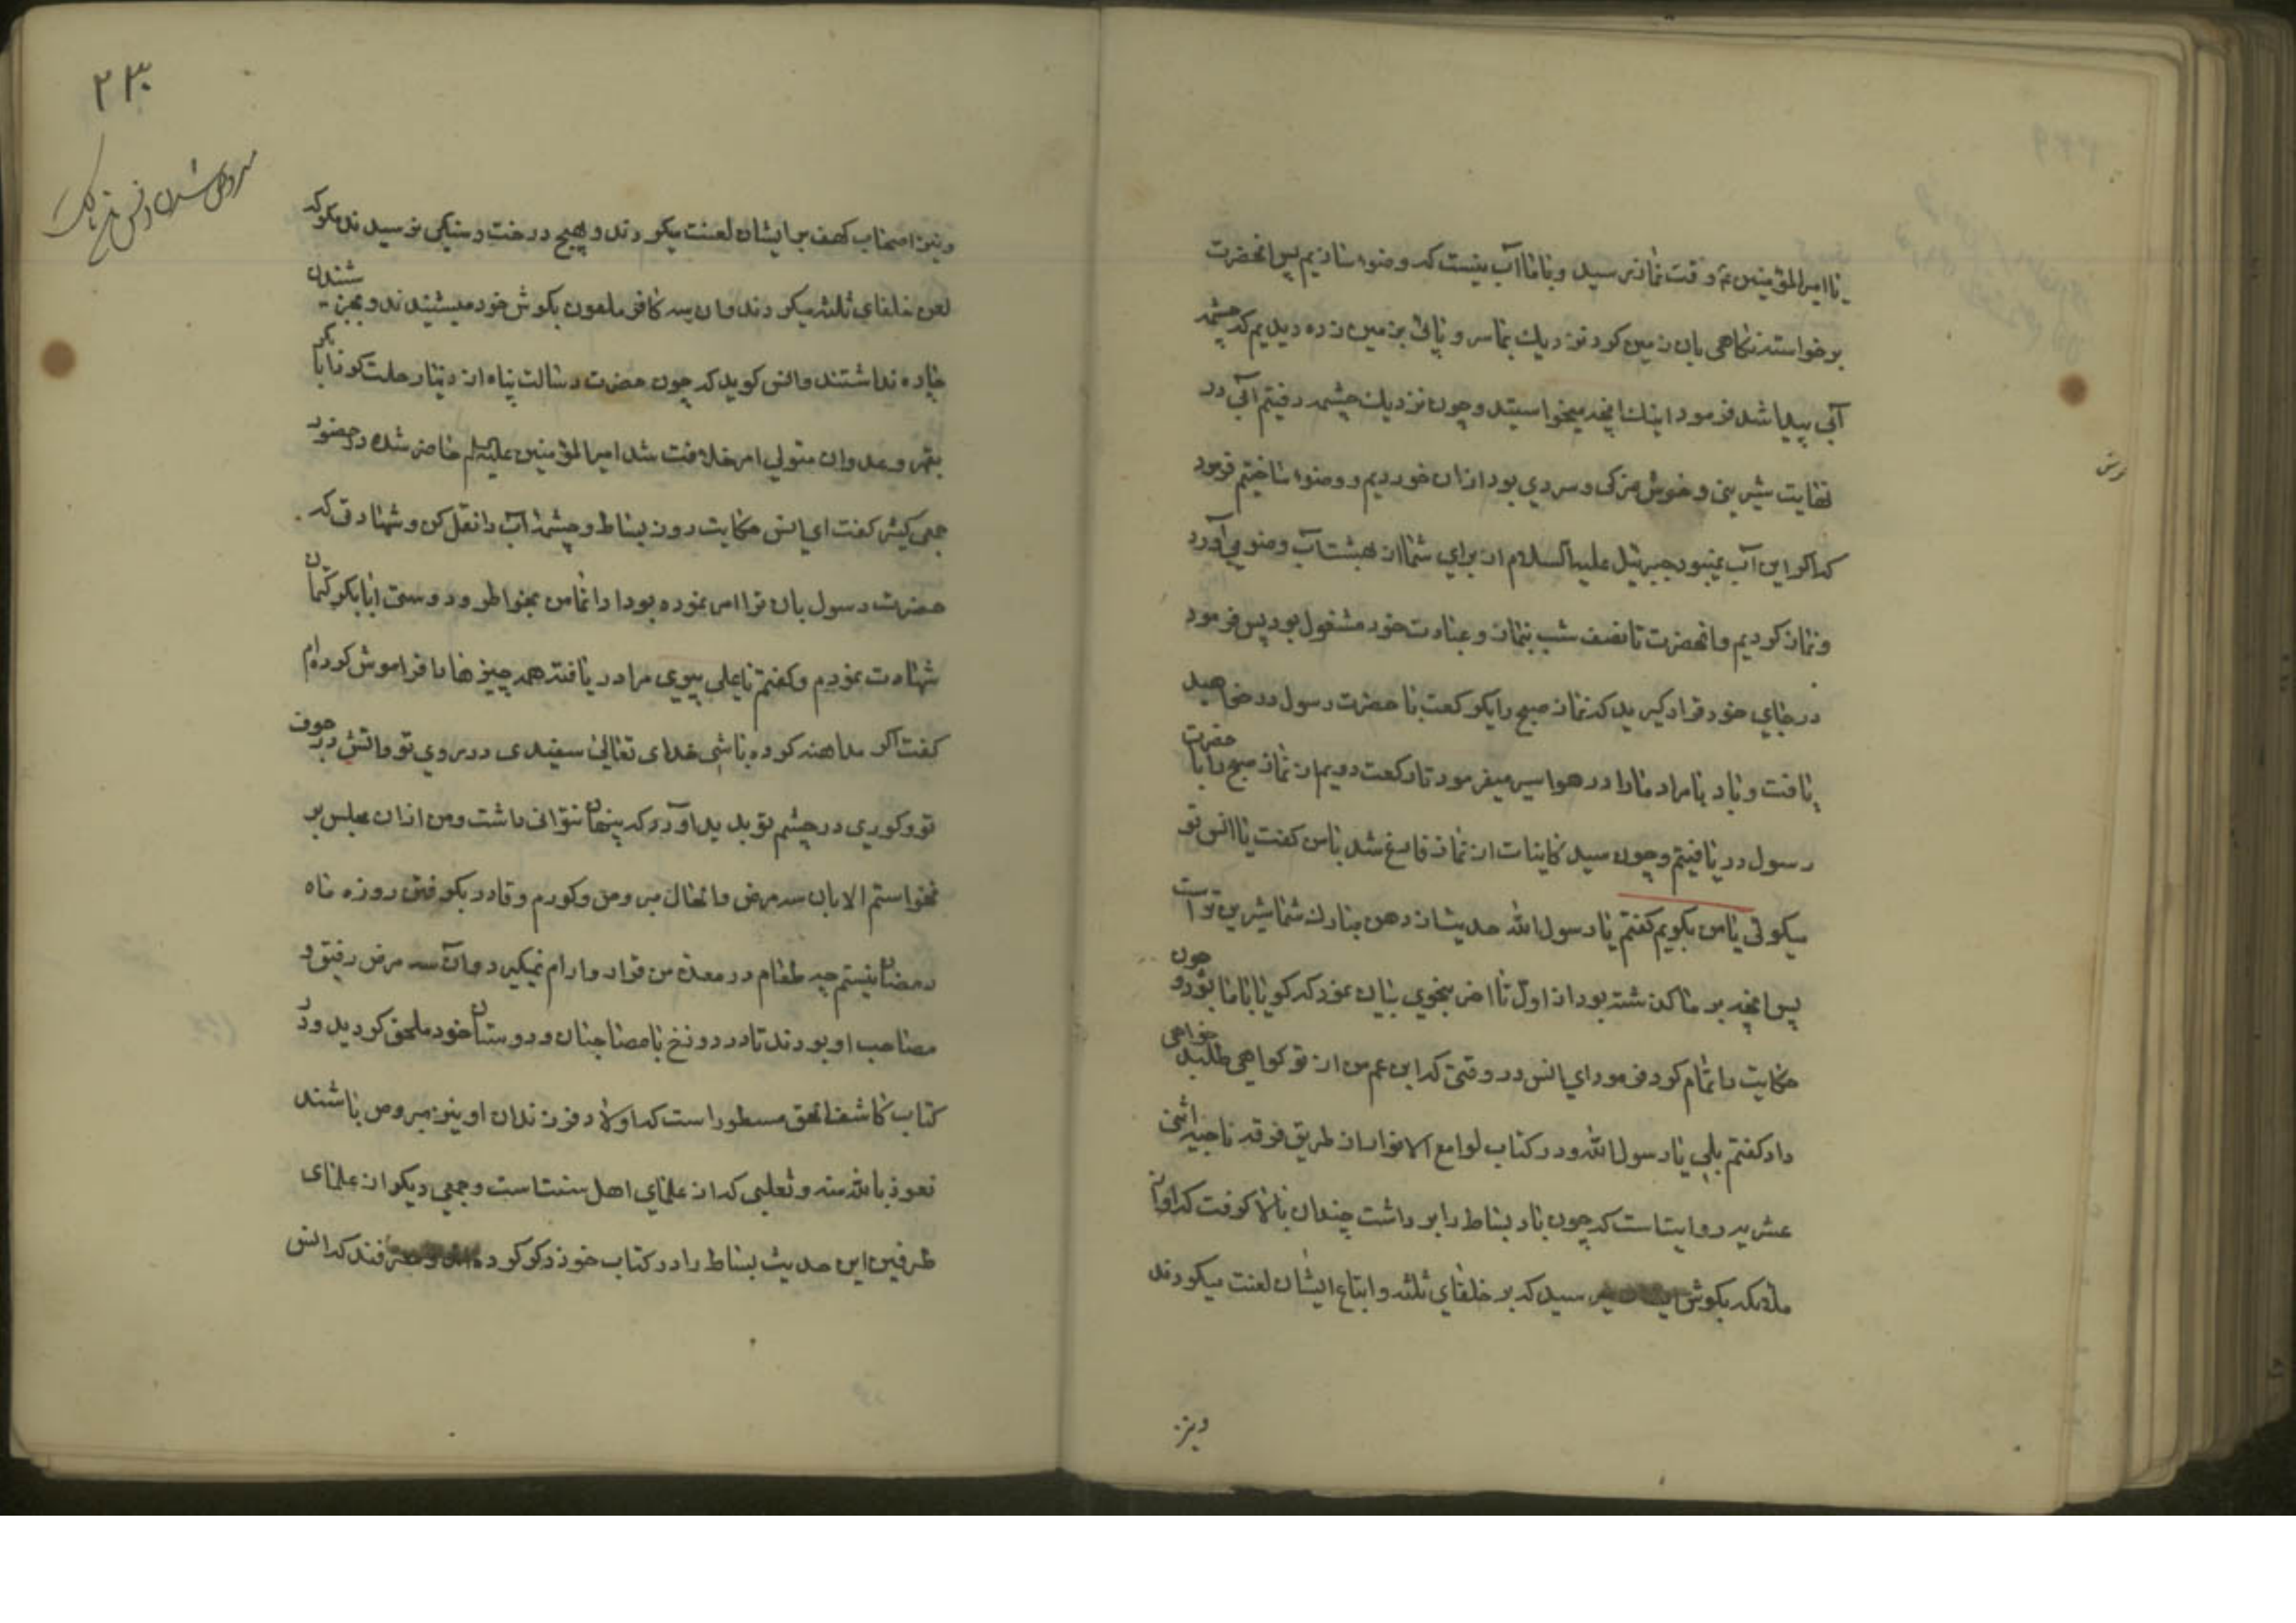 یا امیرالمؤمنین ع وقت نماز رسید و با ما آب نیست که وضو بسازیم پس انحضرت
برخواسته نکاهی بان زمین کرد نزدیک بما سر و پائی بزمین زده دیدیم که چشمه
آبی پیدا شد فرمود اینک انچه میخواستید و چون نزدیک چشمه رفتیم آبی در
نهایت شیرینی و خوش مزکی و سردی بود ازان خوردیم و وضو ساختیم فرمود
که اکر این آب نمیبود جبرئیل علیه السلام از برای شما از بهشت آب وضو می آورد
و نماز کردیم و انحضرت تا نصف شب بنماز و عبادت خود مشغول بود پس فرمود
در جای خود قرار کیرید که نماز صبح را یکرکعت با حضرت رسول در خواهید
یافت و باد بامر او ما را در هوا سیر میفرمود تا رکعت دویم از نماز صبح را با حضرت
رسول دریافتیم و چون سید کاینات از نماز فارغ شد بامن کفت یا انس تو
میکوئی یا من بکویم کفتم یا رسول الله حدیث از دهن مبارک شما شیرین تر است
پس انچه بر ما کذشته بود از اول تا اخر بنحوی بیان نمود که کویا با ما بود و چون
حکایت را تمام کرد فرمود ای انس در وقتی که ابن عم من از تو کواهی خواهی طلبد
داد کفتم بلی یا رسول الله و در کتاب لوامع الانوار از طریق فرقه ناجیه اثنی
عشریه روایتست که چون باد بساط را برداشت چندان بالا کرفت که اواز
ملائکه بکوش ایشان میرسید که بر خلفای ثلثه و اتباع ایشان لعنت میکردند
ونیز
۲۳۰
ونیز اصحاب کهف بر ایشان لعنت میکردند و بهیچ درخت و سنکی نرسیدند مکر که
لعن خلفای ثلثه میکردند و ان سه کافر ملعون بکوش خود میشنیدند و بجز شنیدن
چاره نداشتند و انس کوید که چون حضرت رسالت پناه از دنیا رحلت کرد ابا بکر
بقهر و عدوان متولی امر خلافت شد امیرالمؤمنین علیه السلام حاضر شده در حضور
جمعی کثیر کفت ای انس حکایت روز بساط و چشمه آب را نقل کن و شهادتی که
حضرت رسول بان ترا امر نموده بود ادا نما من بخواطر و دوستی ابابکر کتمان
شهادت نمودم و کفتم یا علی پیری مرا دریافته همه چیزها را فراموش کرده ام
کفت اکر مداهنه کرده باشی خدای تعالی سفیدی در روی تو و اتش در جوف
تو و کوری در چشم تو پدید آورد که پنهان نتوانی داشت و من ازان مجلس بر
نخواستم الا بان سه مرض و الحال مبروص و کورم و قادر بکرفتن روزه ماه
رمضان نیستم چه طعام در معده من قرار و ارام نمیکیرد و آن سه مرض رفیق و
مصاحب او بودند تا در دوزخ با مصاحبان و دوستان خود ملحق کردید و در
کتاب کاشف الحق مسطور است که اولاد و فرزندان او نیز مبروص باشند
نعوذ بالله منه و ثعلبی که از علمای اهل سنت است و جمعی دیکر از علمای
طرفین این حدیث بساط را در کتاب خود ذکر کرده اند که انس